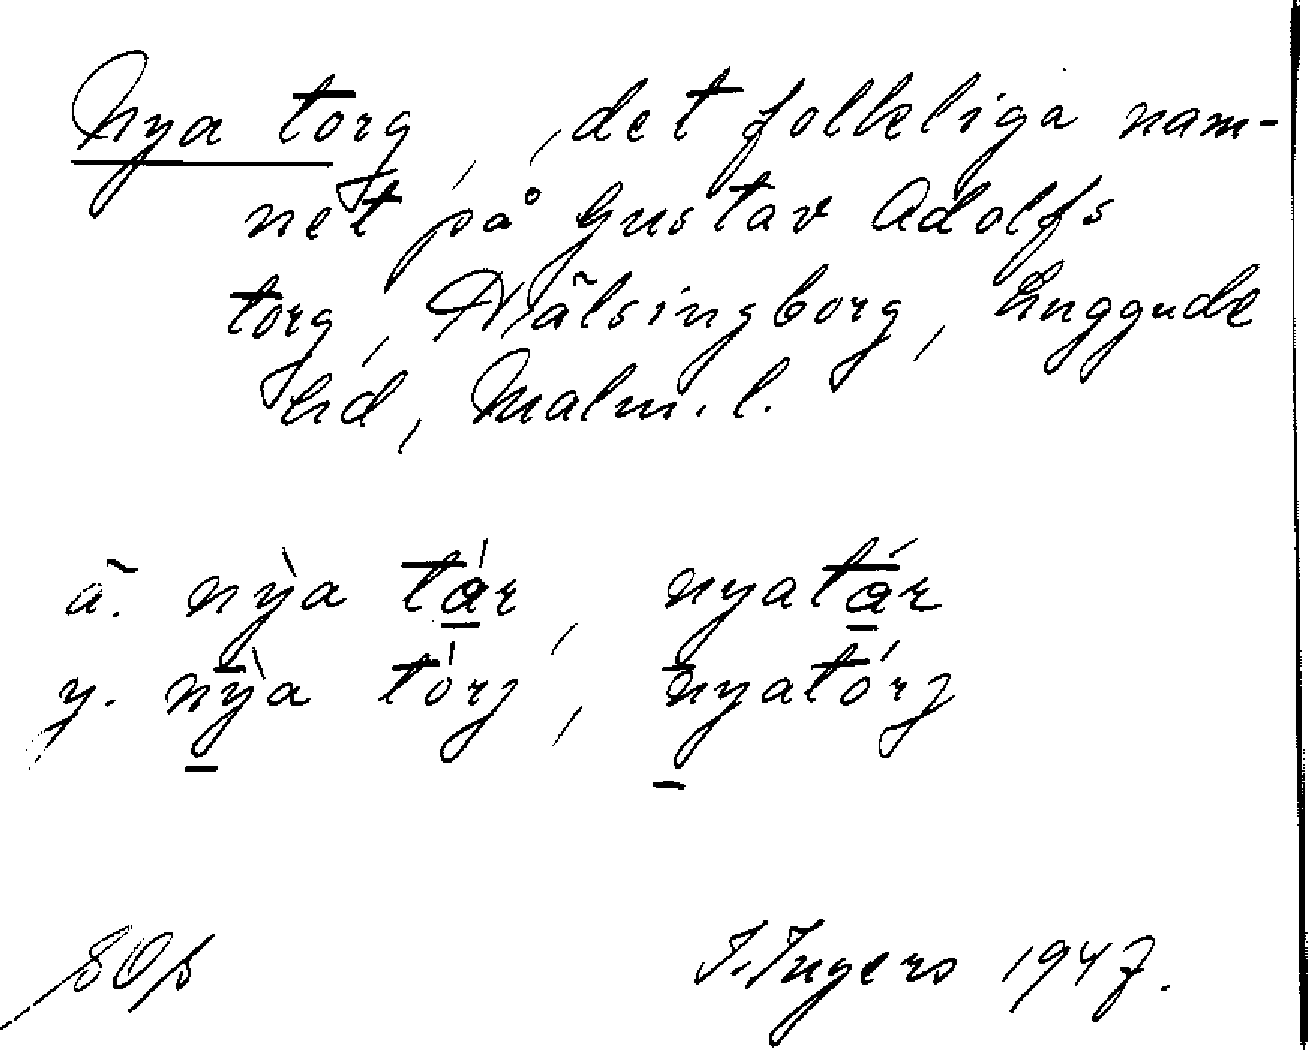 Nya torg, det folkliga nam-
net på Gustav Adolfs
torg, Hälsingborg, Luggude
hd, Malm. l.
ä. nỳa tár, nyatár
y. nỳa tórj, nyatórj
I. Ingers 1947.